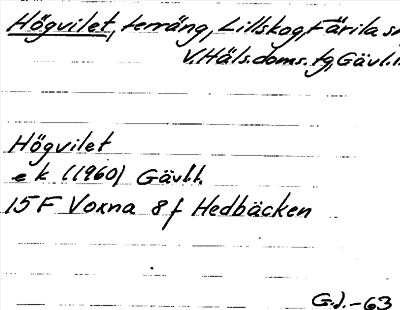 Högvilet, terräng, Lillskog, Färila sn
V. Häls. doms. tg, Gävl. l.
Högvilet
e k (1960) Gävl.l.
15F Voxna 8f Hedbäcken
G.J.-63